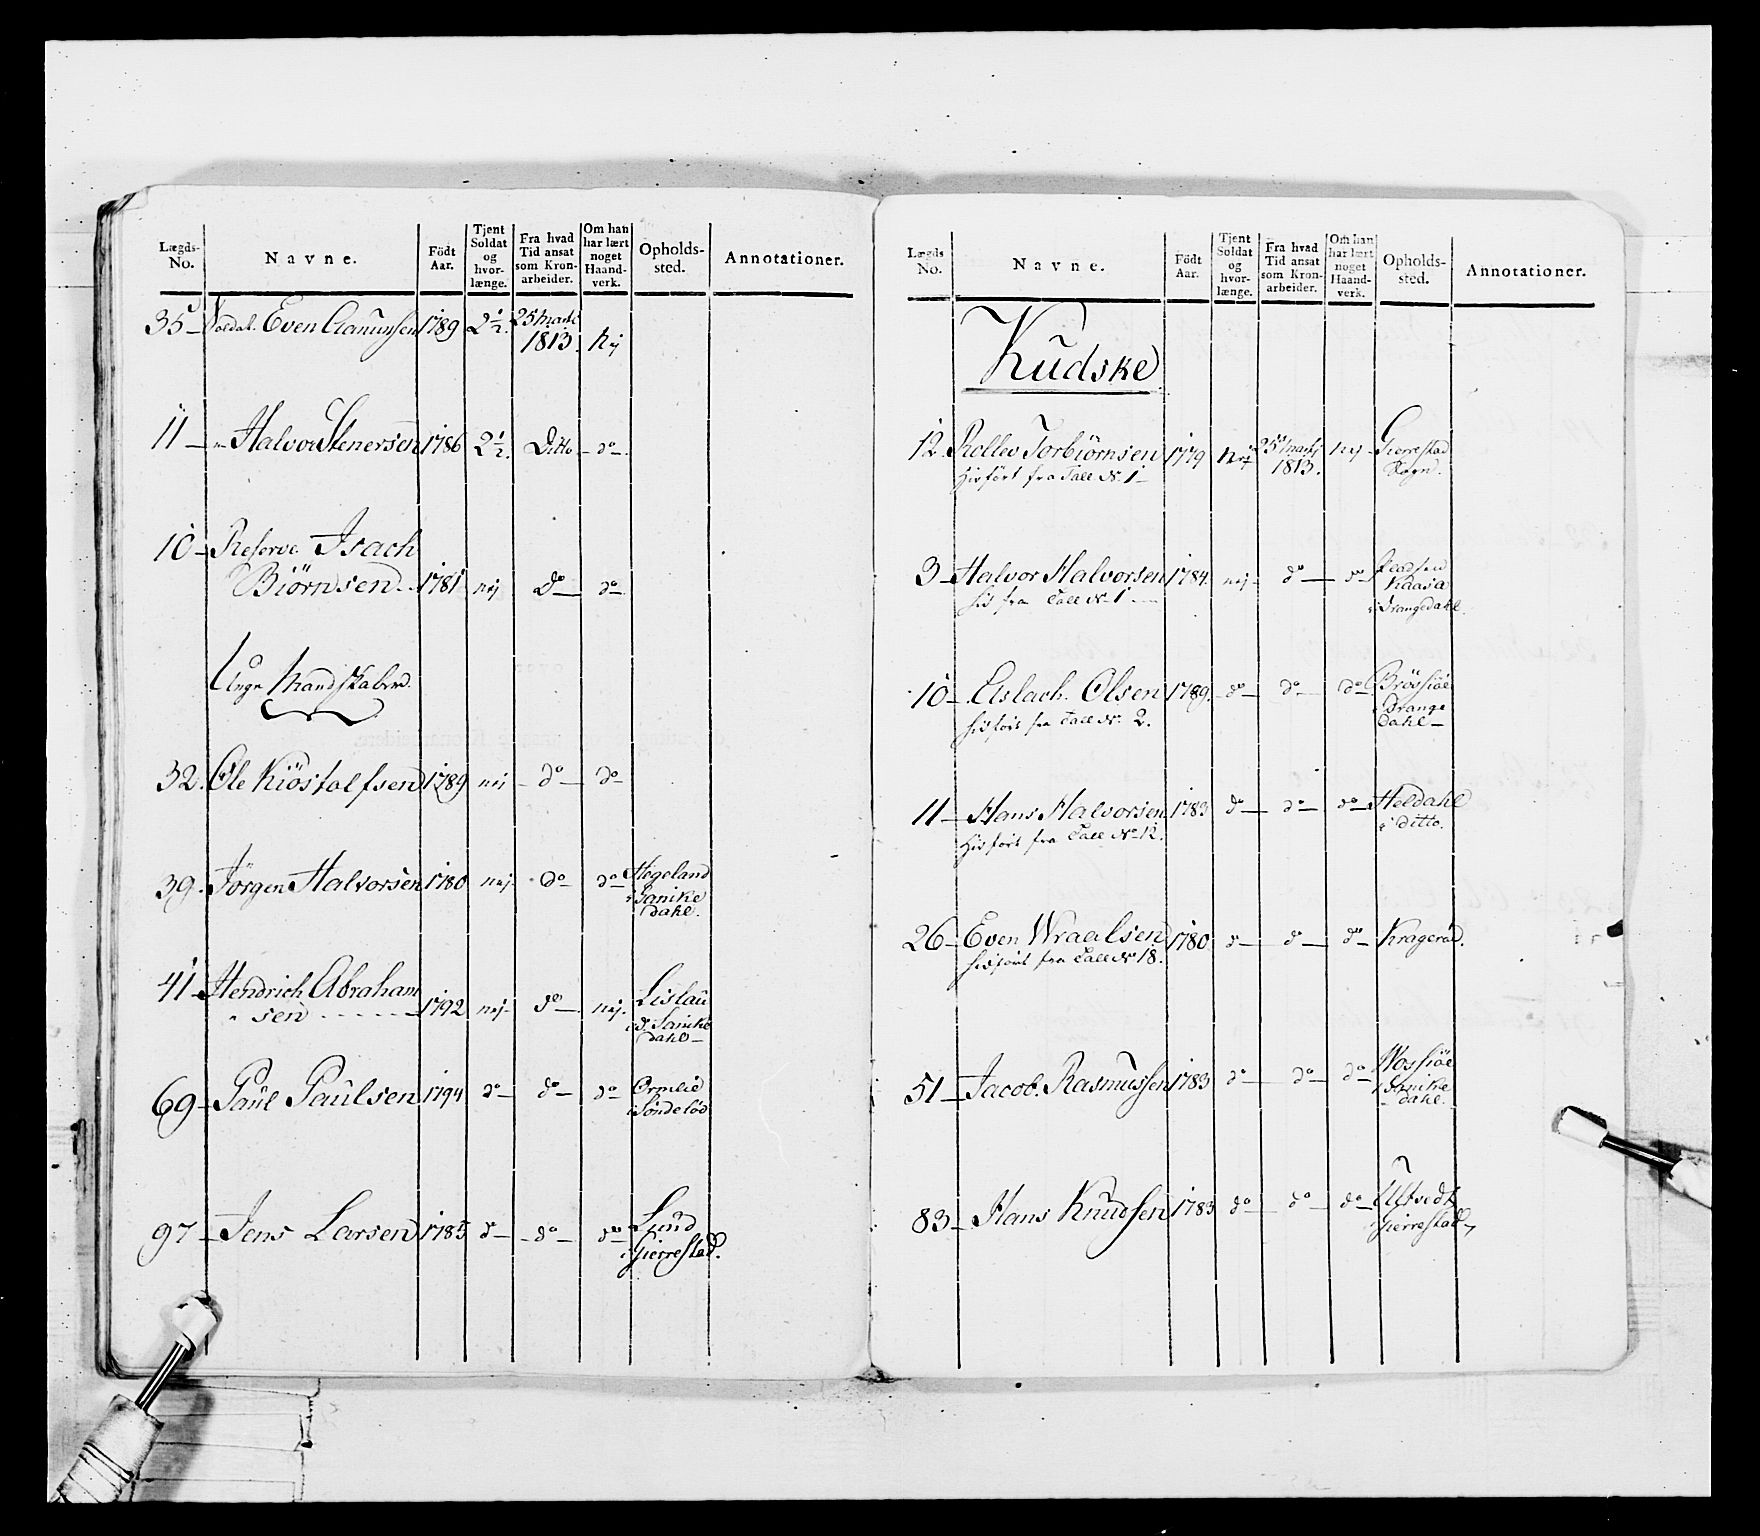 Lægds- No. | Navne. | Födt Aar. | Tjent Soldat og hvor- længe. | Fra hvad Tid ansat som Kron- arbeider. | Om han har lært noget Haand- verk. | Opholds- sted. | Annotationer.
35 Soldat. Even Aamunsen 1789 2 1/2. 25 Marti 1813. Nej
11 " Halvor Stenersen 1786 2 1/2. Ditto do
10 Reserve Isach
Biörnsen 1781 nej Do do
Unge Mandskaber.
32. Ole Kiöstolfsen 1789 nej do do
39. Jörgen Halvorsen 1780 nej do do Hegeland
i Sanike
dahl.
41 Hendrich Abraham
sen 1792 nej do nej. Lislau
i Sanike
dahl
69 Paul Paulsen 1794 do do do Ormlie
i Söndelöd
97 Jens Larsen 1785 do do do Lund
i Gierrestad.
Lægds No. | Navne. | Födt Aar. | Tjent Soldat og hvor- længe. | Fra hvad Tid ansat som Kron- arbeider. | Om han har lært noget Haand- verk. | Opholds- sted. | Annotationer.
Kudske
12 Rollev Torbiörnsen 1779 Nej 25 Martj 1813. nej Gierrestad
Sogn.
Hidfört fra Tall No 1
3 Halvor Halvorsen 1784. nej do do
Kaasa
i Drangedahl
hid fra Tall No 1
10 Aslach Olsen 1789. do do do Brössiöe
i Drange
dahl
hidfört fra Tall No 2.
11 Hans Halvorsen 1783 do do do Heldahl
i ditto.
Hidfört fra Tall No 12.
26 Even Wraalsen 1780 do do do Krageröe.
hidfört fra Tall No 18.
51 Jacob Rasmussen 1783 do do do Wossiöe
i Sanike
dahl.
83 Hans Knudsen 1783 do do do
i Gierrestad